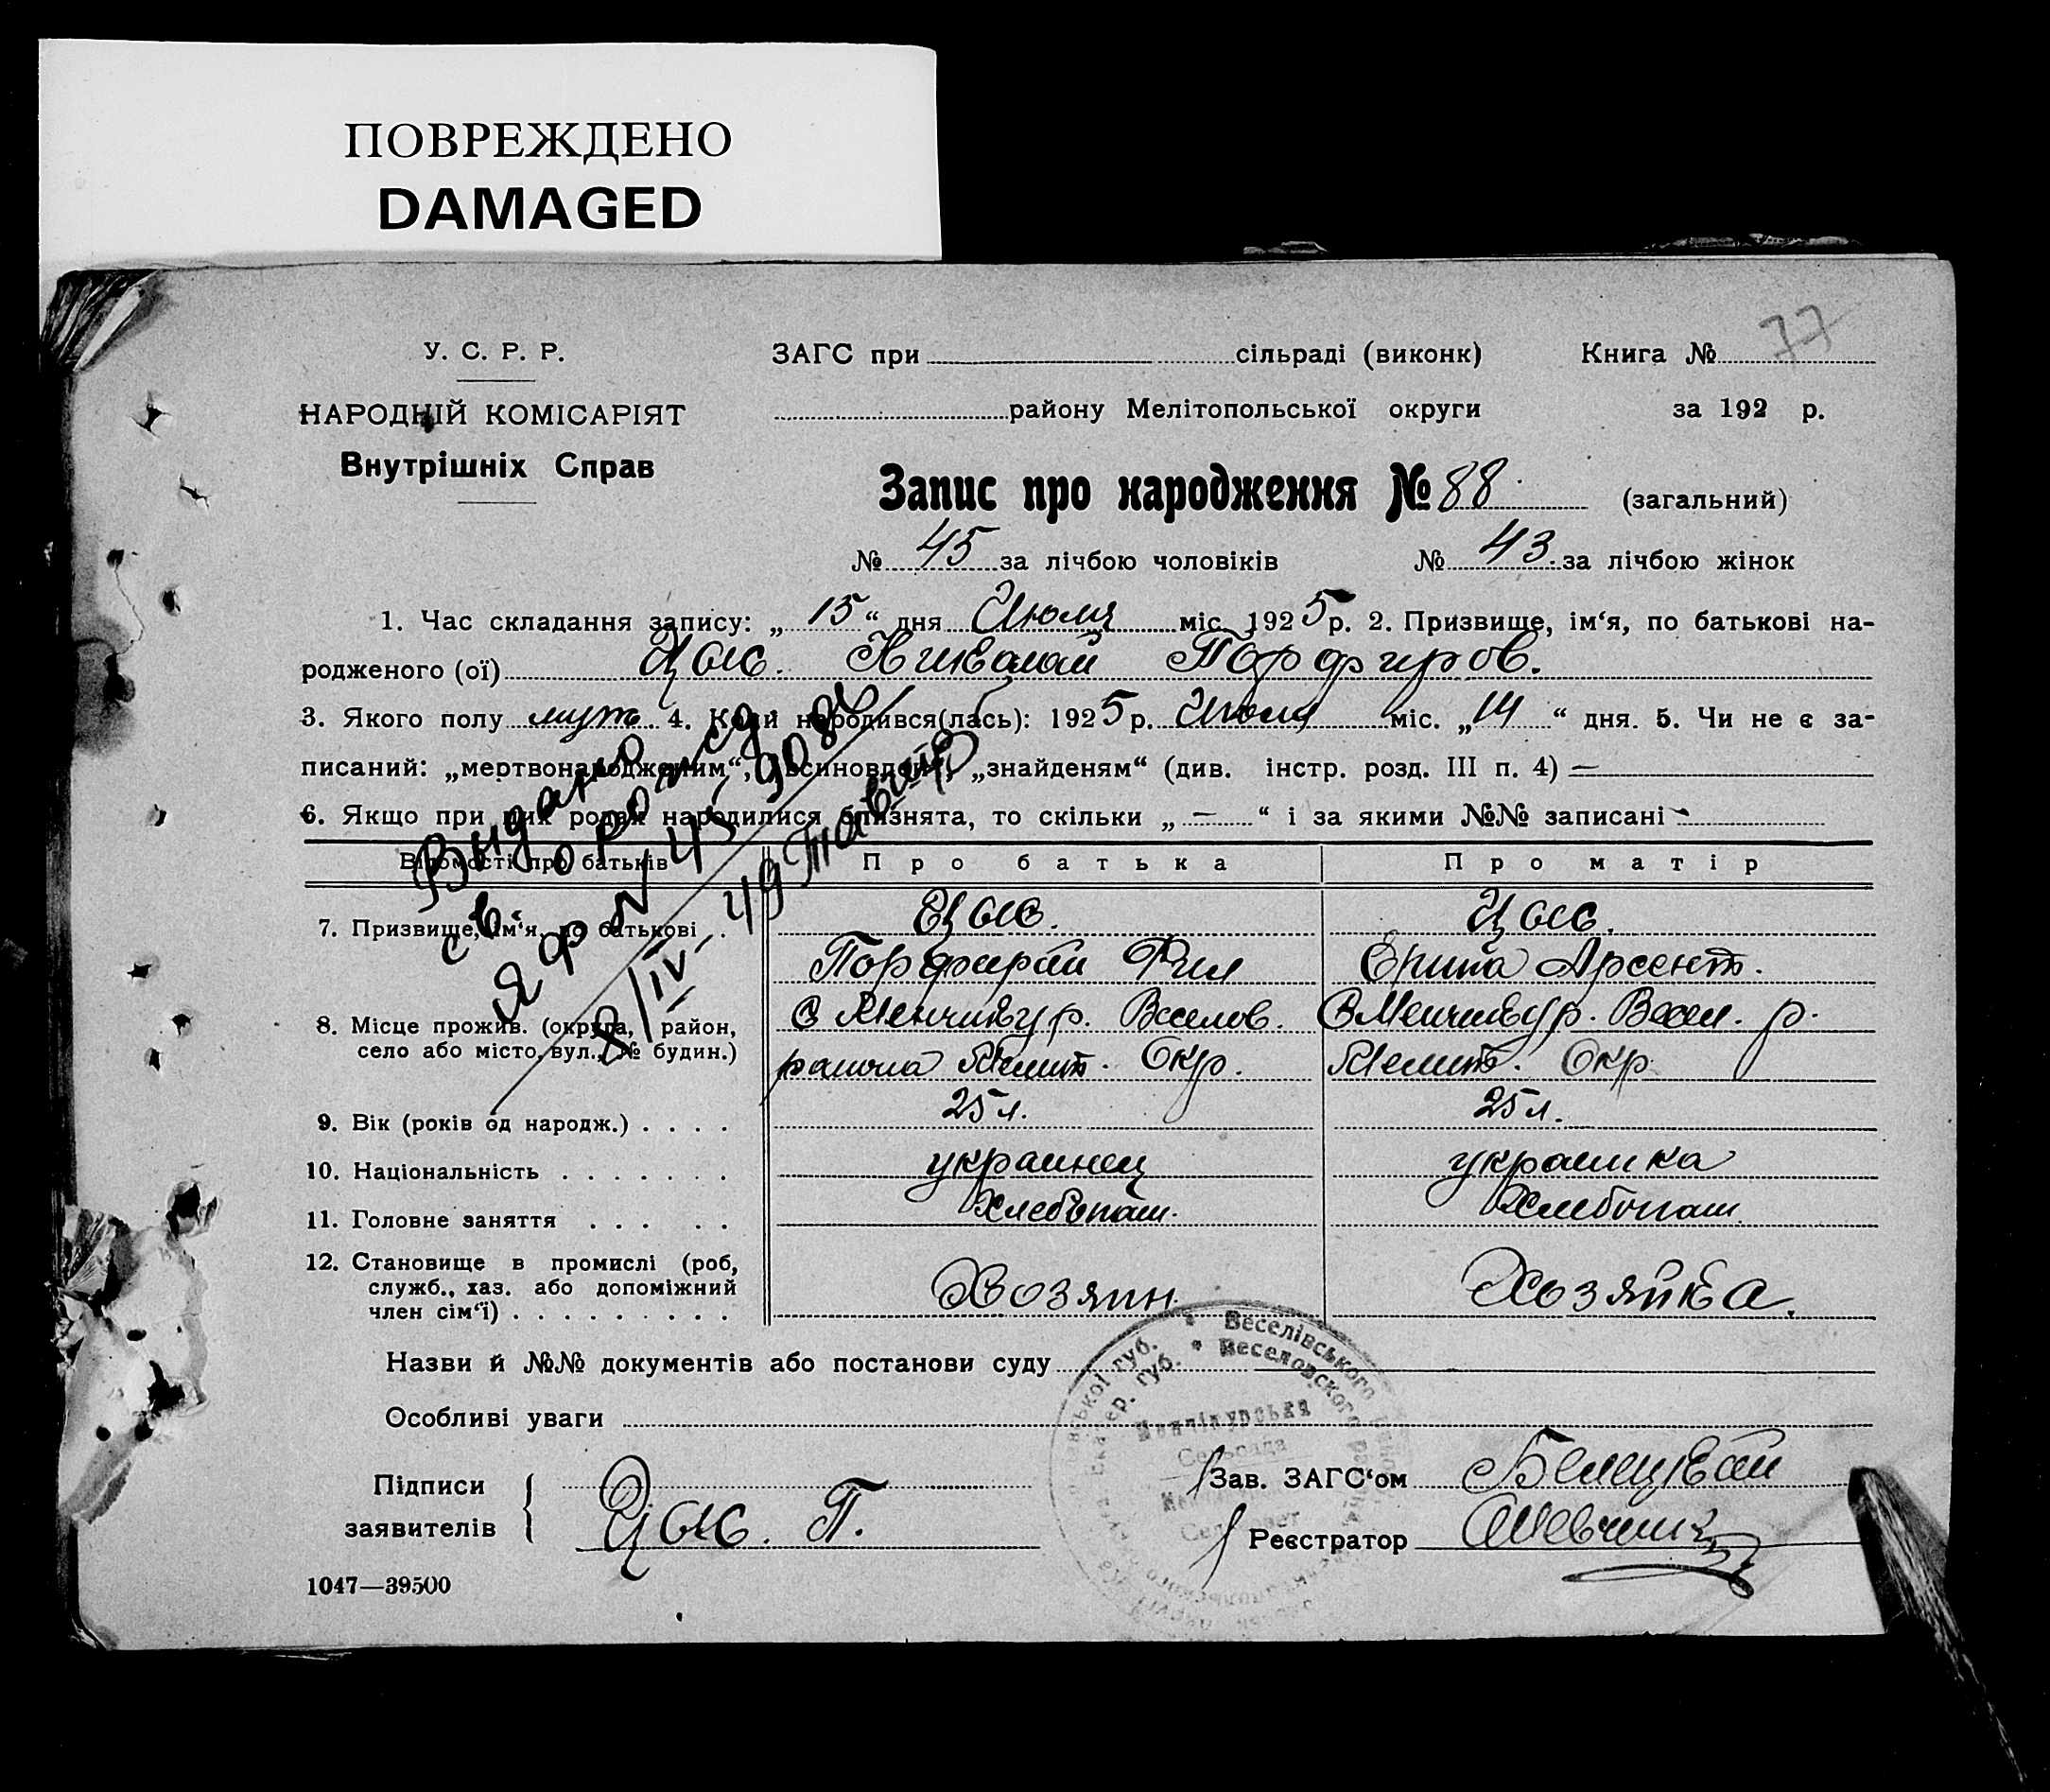 ПОВРЕЖДЕНО
DAMAGED
77
У. С. Р. Р.
НАРОДНІЙ КОМІСАРІЯТ
Внутрішніх Справ
ЗАГС при сільраді (виконк) Книга №
району Мелітопольської округи за 192 р.
Запис про народження № 88. (загальний)
№ 45 за лічбою чоловіків № 43. за лічбою жінок
1. Час складання запису: „15“ дня Июля міс. 1925 р. 2. Призвище, ім‘я, по батькові на-
родженого (ої) Цыс. Николай Порфиров.
3. Якого полу муж. 4. Коли народився(лась): 1925 р. Июля міс. „14“ дня. 5. Чи не є за-
писаний: „мертвонародженим“, „знайденям“ (див. інстр. розд. III п. 4) —
6. Якщо при цих родах народилися близнята, то скільки „—“ і за якими №№ записані -
Видано
св. о рожд.
ЯФ № 45
8/IV- 49
Відомості про батьків Про батька Про матір
7. Призвище, ім‘я, по батькові . Цыс. Цыс.
Порфирий Фил Ерина Арсент.
8. Місце прожив. (округа, район, С Менчикур. Веселов. С Менчикур. Весел. р.
село або місто, вул., № будин.) района Мелит. Окр. Мелит. Окр
9. Вік (років од народж.) . . . . 25 л. 25 л.
10. Національність . . . . . . . украинец украинка
11. Головне заняття . . . . . Хлебопаш. Хлебопаш.
12. Становище в промислі (роб, служб., хаз. або допоміжний член сім‘ї) . . . . . . . . . Хозяин Хозяйка.
Назви й №№ документів або постанови суду
Особливі уваги
Веселівського
Веселовского
Менчікурська
Сельрада
Підписи Зав. ЗАГС‘ом
заявителів Цыс. П. Реєстратор
1047—39500